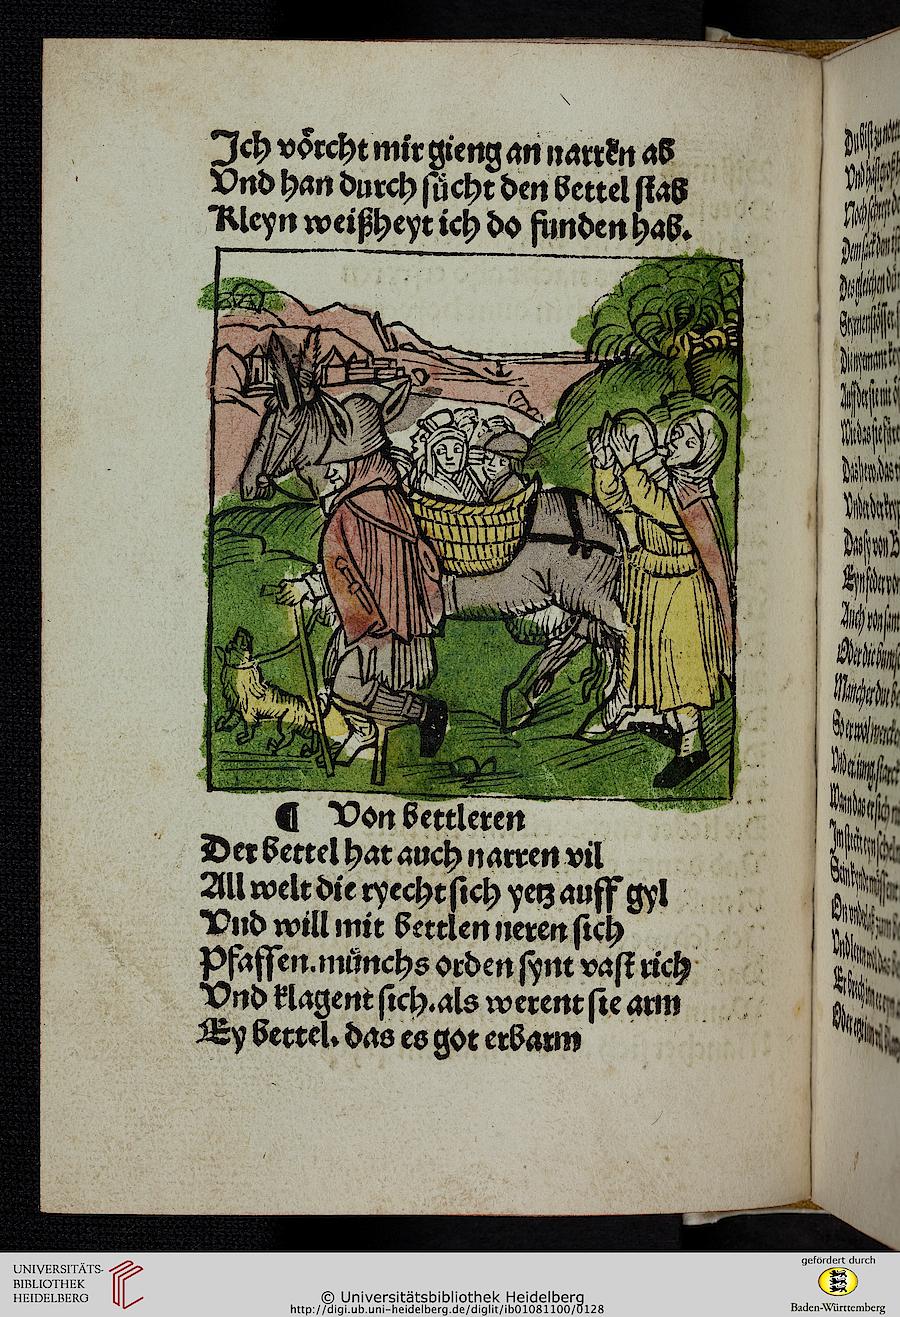 Ich vörcht mir gieng an narrẽn ab
Vnd han durch sücht den bettel stab
Kleyn weißheyt ich do funden hab.
¶ Von bettleren
Der bettel hat auch narren vil
All welt die ryecht sich yetz auff gyl
Vnd will mit bettlen neren sich
Pfaffen. münchs orden synt vast rich
Vnd klagent sich. als werent sie arm
Ey bettel. das es got erbarm
Vnd
Noch
Auch von
Oder die
Mancher
UNIVERSITÄTS-
BIBLIOTHEK
HEIDELBERG
© Universitätsbibliothek Heidelberg
http://digi.ub.uni-heidelberg.de/diglit/ib01081100/0128
gefördert durch
Baden-Württemberg